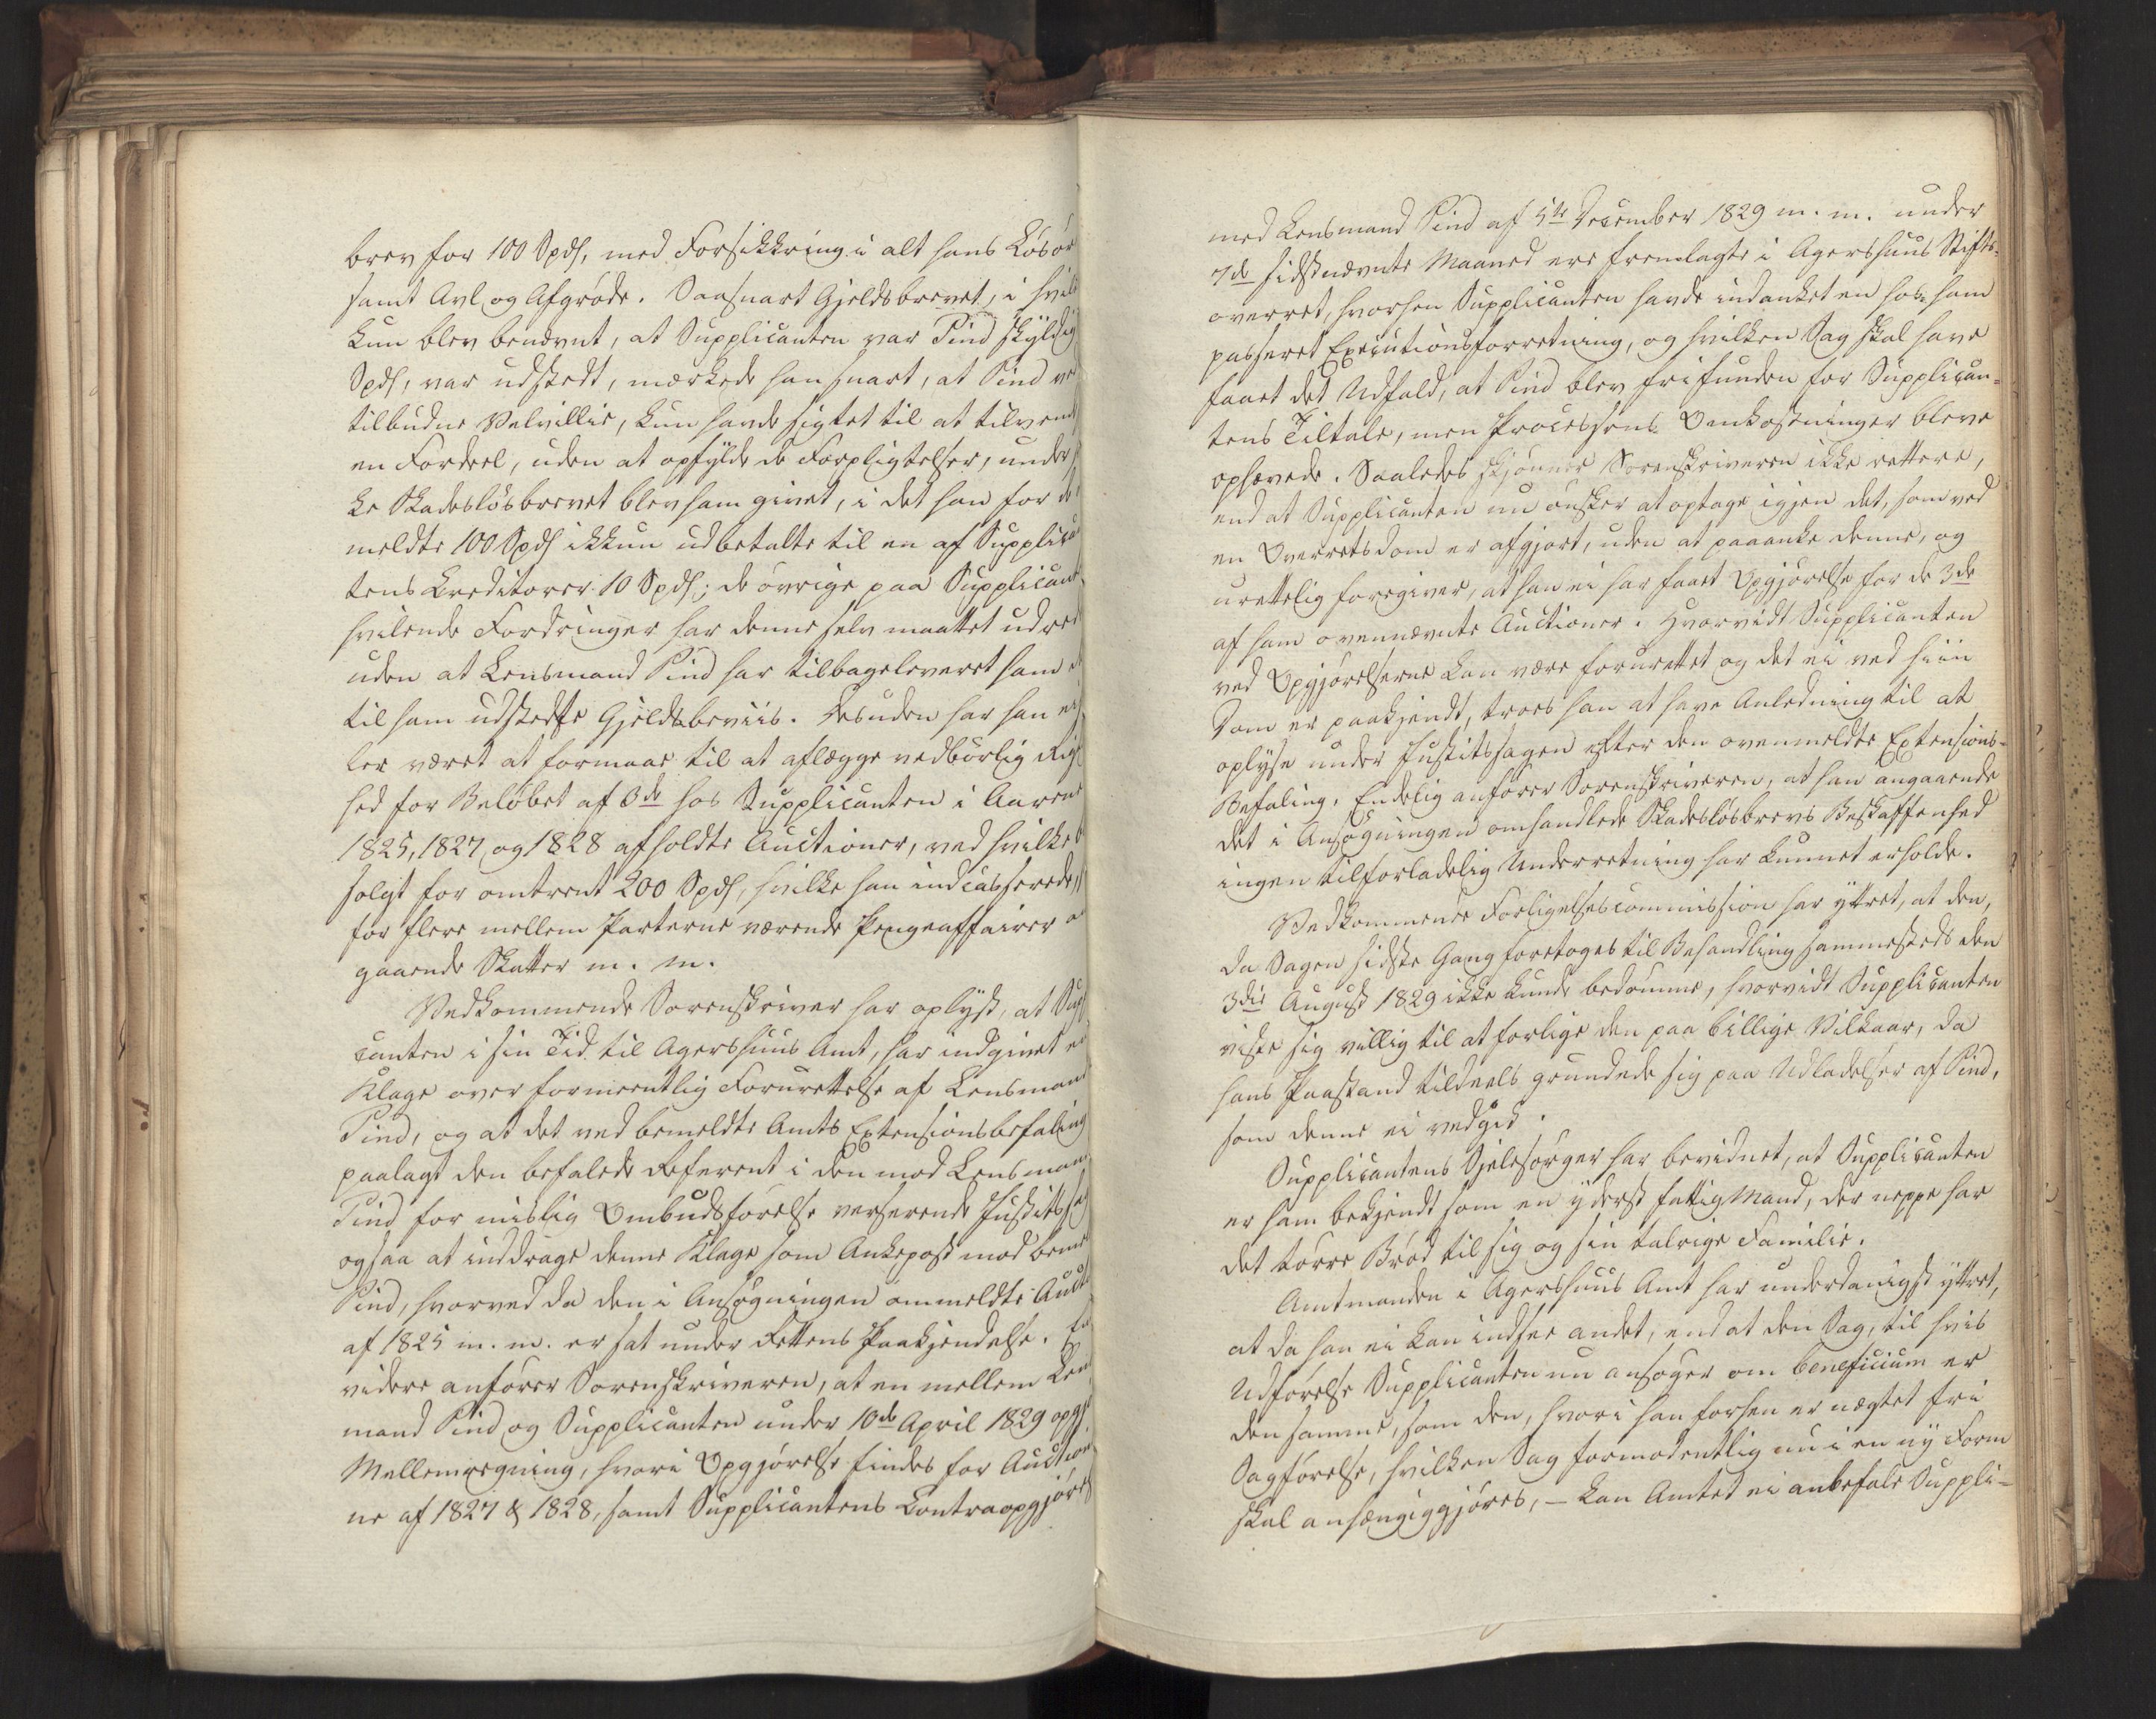 brev for 100 Spd, med Forsikkring i alt hans Løsør
samt Avl og Afgrøde. Saasnart Gjeldsbrevet, i
kun blev benævnt, at Supplicanten var Pind skyldig
Spd, var udstedt, mærkede han snart, at Pind
tilbudne Velvillie, kun havde sigtet til at tilvend
en Fordeel, uden at opfylde de Forpligtelser, under
ke Skadesløsbrevet blev ham givet, i det han for
meldte 100 Spd ikkun udbetalte til en af Supplica
tens Creditorer 10 Spd; de øvrige paa Supplicant
hvilende Fordringer har denne selv maattet udrede
uden at Lensmand Pind har tilbageleveret ham
til ham udstedte Gjeldsbeviis. Desuden har han
ler været at formaae til at aflægge vedbørlig Rig
hed for Beløbet af 3de hos Supplicanten i Aarene
1825, 1827 og 1828 afholdte Auctioner, ved hvilke
solgt for omtrent 200 Spd, hvilke han indcasserede,
for flere mellem Parterne værende Pengeaffairer
gaaende Skatter m. m.
Vedkommende Sorenskriver har oplyst, at Sup
canten i sin Tid til Agershuus Amt, har indgivet
Klage over formeentlig Forurettelse af Lensmand
Pind, og at det ved bemeldte Amts Extensionsbefaling
paalagt den befalede Referent i den mod Lensmand
Pind for mislig Ombudsførelse verserende Justitssag
ogsaa at inddrage denne Klage som Ankepost mod beme
Pind, hvorved da den i Ansøgningen ommeldte Auct
af 1825 m. m. er sat under Rettens Paakjendelse.
videre anfører Sorenskriveren, at en mellem Lens
mand Pind og Supplicanten under 10de April 1829 opgj
Mellemregning, hvori Opgjørelse findes for Auction
ne af 1827 & 1828, samt Supplicantens Contraopgjøre
med Lensmand Pind af 5te December 1829 m. m. under
7de sidstnævnte Maaned ere fremlagte i Agershuus Stifts-
overret, hvorhen Supplicanten havde indanket en hos ham
passeret Executionsforretning, og hvilken Sag skal have
faaet det Udfald, at Pind blev frifunden for Supplican-
tens Tiltale, men Processens Omkostninger bleve
ophævede. Saaledes skjønner Sorenskriveren ikke rettere,
end at Supplicanten nu ønsker at optage igjen det, som ved
en Overretsdom er afgjort, uden at paaanke denne, og
urettelig foregiver, at han ei har faaet Opgjørelse for de 3de
af ham ovennævnte Auctioner. Hvorvidt Supplicanten
ved Opgjørelserne kan være forurettet og det ei ved hiin
Dom er paakjendt, troes han at have Anledning til at
oplyse under Justitssagen efter den ovenmeldte Extensions-
Befaling. Endelig anfører Sorenskriveren, at han angaaende
det i Ansøgningen omhandlede Skadesløsbrevs Beskaffenhed
ingen tilforladelig Underretning har kunnet erholde.
Vedkommende Forligelsescommission har yttret, at den,
da Sagen sidste Gang foretoges til Behandling sammesteds den
3die August 1829 ikke kunde bedømme, hvorvidt Supplicanten
viste sig villig til at forlige den paa billige Vilkaar, da
hans Paastand tildeels grundede sig paa Udladelser af Pind,
som denne ei vedgik.
Supplicantens Sjelesørger har bevidnet, at Supplicanten
er ham bekjendt som en yderst fattig Mand, der neppe har
det tørre Brød til sig og sin talrige Familie.
Amtmanden i Agershuus Amt har underdanigst yttret,
at da han ei kan indsee andet, end at den Sag, til hvis
Udførelse Supplicanten nu ansøger om beneficium er
den samme, som den, hvori han forhen er nægtet fri
Sagførelse, hvilken Sag formodentlig nu i en ny Form
skal anhængiggjøres, – kan Amtet ei anbefale Suppli-